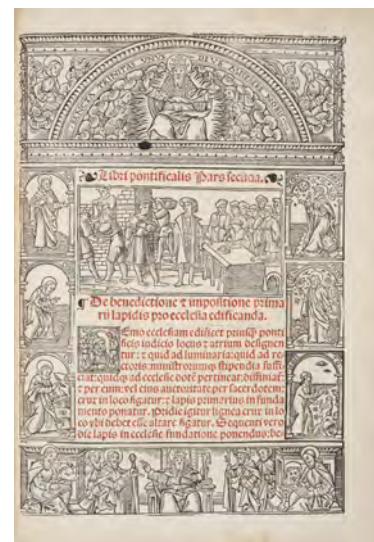 SANCTA TRINITAS UNUS DEUS MISERERE NOBIS
Libri pontificalis Pars secūda.
¶ De benedictione ⁊ impositione prima
rii lapidis pro ecclesia edificanda.
NEmo ecclesiam edificet priusq̄ ponti
ficis iudicio locus ⁊ atrium designen
tur: ⁊ quid ad luminaria: quid ad re-
ctoris: ministrorumq; stipendia suffi
ciat: quidq; ad ecclesie dotē pertineat: diffiniaſ:
⁊ per eum: vel eius auctoritate per sacerdotem:
crux in loco figatur: ⁊ lapis primarius in funda
mento ponatur. Pridie igitur lignea crux in lo
co vbi debet esse altare figatur. Sequenti vero
die lapis in ecclesie fundatione ponendus: be-